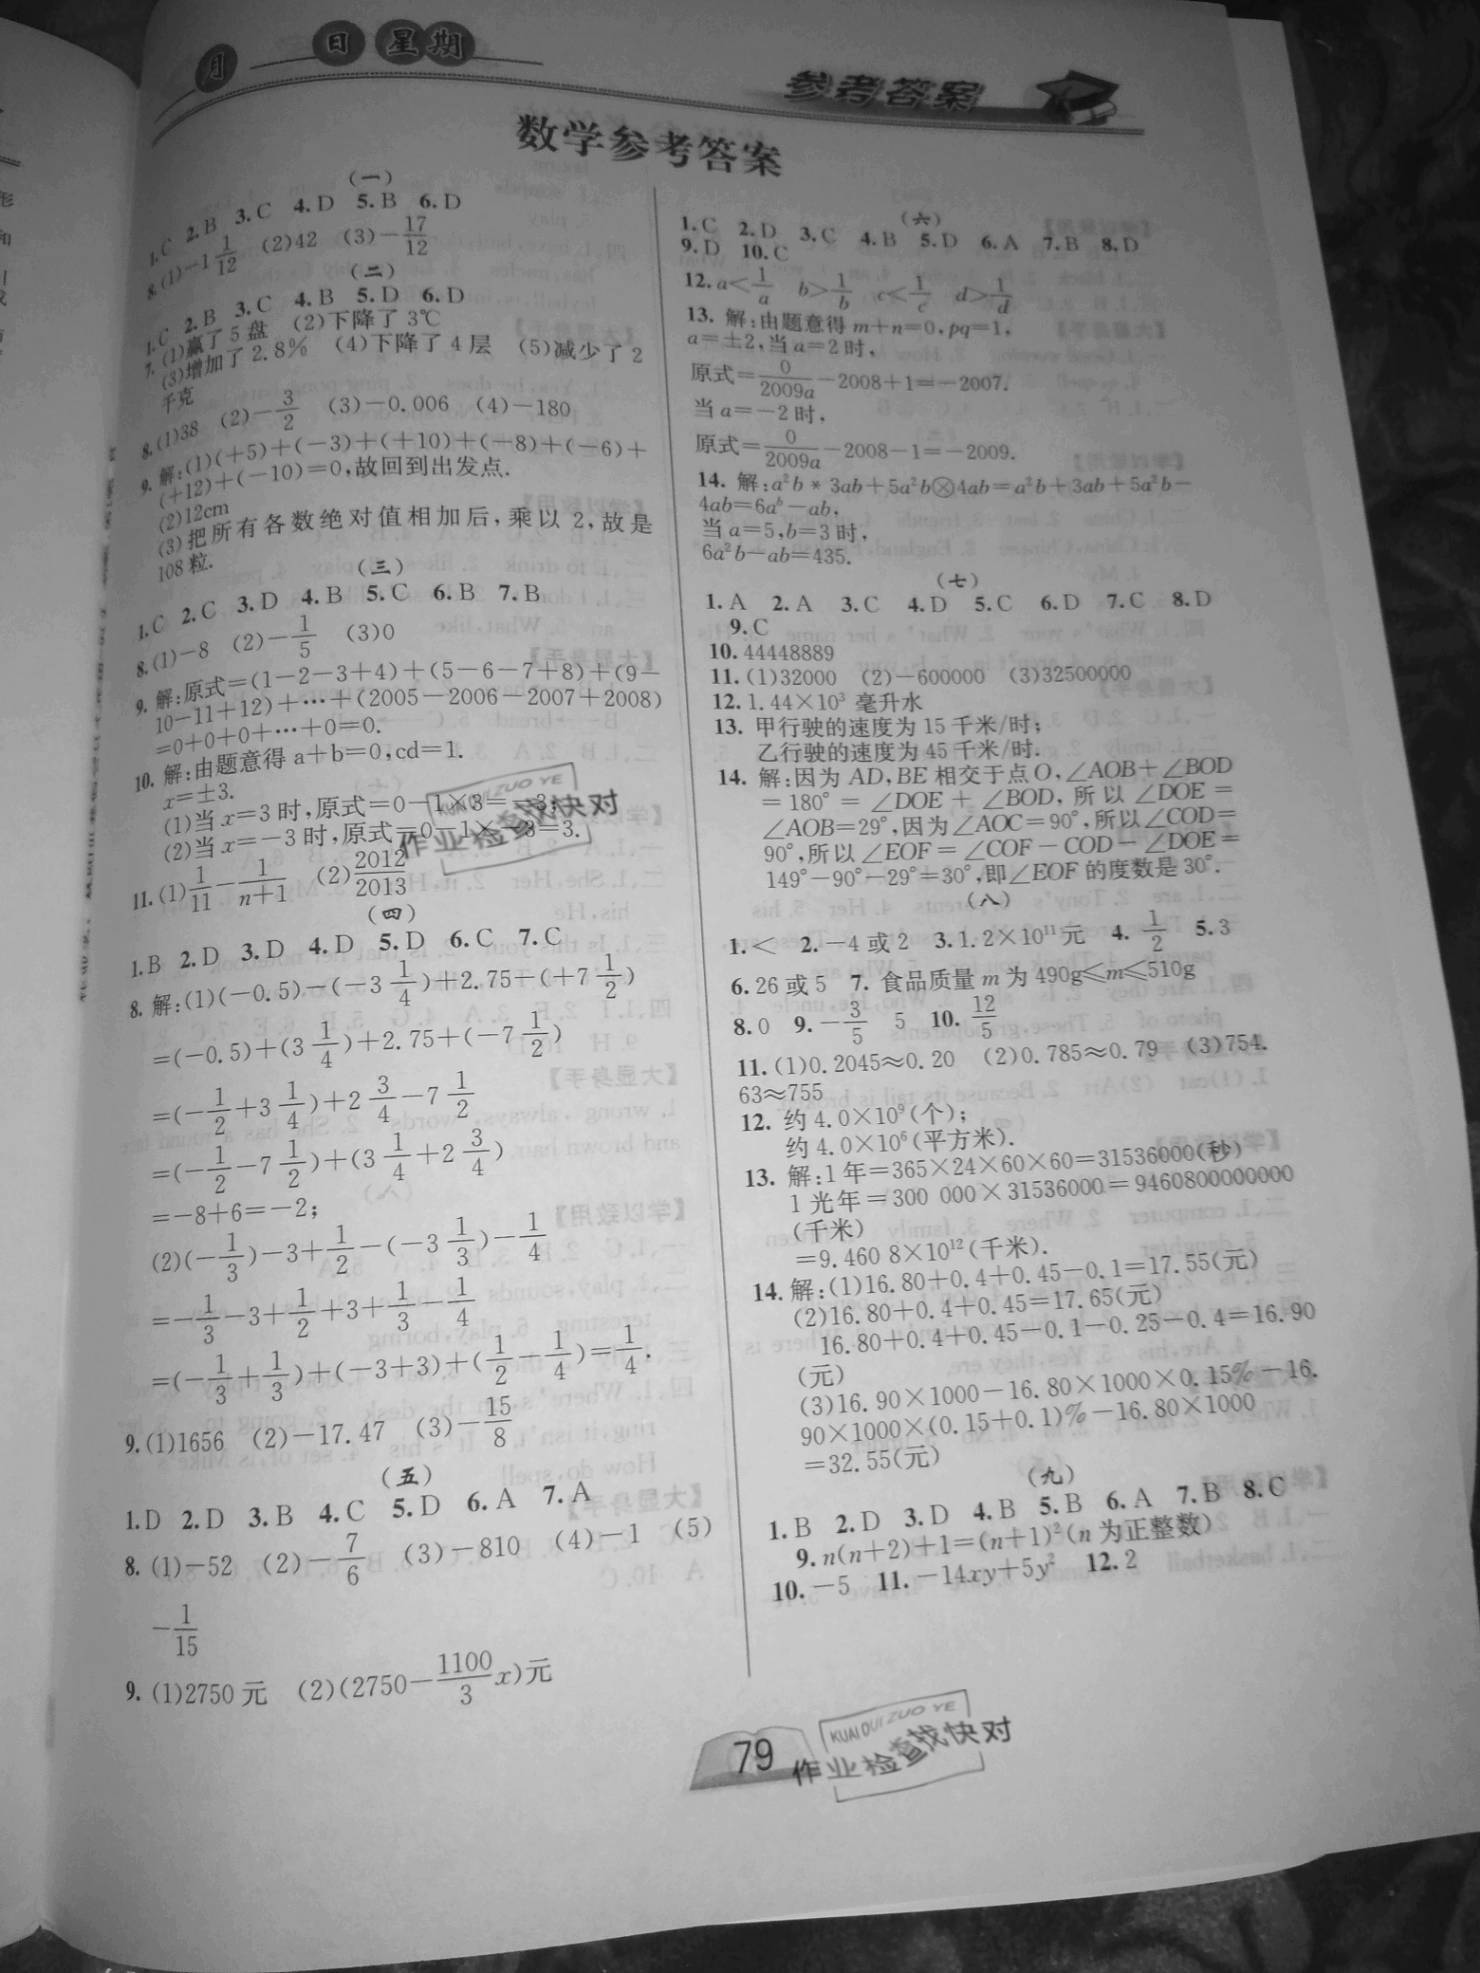 月 日 星期
参考答案
数学参考答案
(一)
1.C 2.B 3.C 4.D 5.B 6.D
8.(1)-1 1/12 (2)42 (3)-17/12
(二)
1.C 2.B 3.C 4.B 5.D 6.D
7.(1)赢了5盘 (2)下降了3℃
(3)增加了2.8% (4)下降了4层 (5)减少了2
千克
8.(1)38 (2)-3/2 (3)-0.006 (4)-180
9.解:(1)(+5)+(-3)+(+10)+(-8)+(-6)+
(+12)+(-10)=0,故回到出发点.
(2)12cm
(3)把所有各数绝对值相加后,乘以2,故是
108粒.
(三)
1.C 2.C 3.D 4.B 5.C 6.B 7.B
8.(1)-8 (2)-1/5 (3)0
9.解:原式=(1-2-3+4)+(5-6-7+8)+(9-
10-11+12)+…+(2005-2006-2007+2008)
=0+0+0+…+0=0.
10.解:由题意得a+b=0,cd=1.
x=±3.
(1)当x=3时,原式=0-1×3=-3;
(2)当x=-3时,原式=0-1×-3=3.
11.(1)1/11-1/(n+1) (2)2012/2013
(四)
1.B 2.D 3.D 4.D 5.D 6.C 7.C
8.解:(1)(-0.5)-(-3 1/4)+2.75-(+7 1/2)
=(-0.5)+(3 1/4)+2.75+(-7 1/2)
=(-1/2+3 1/4)+2 3/4-7 1/2
=(-1/2-7 1/2)+(3 1/4+2 3/4)
=-8+6=-2;
(2)(-1/3)-3+1/2-(-3 1/3)-1/4
=-1/3-3+1/2+3+1/3-1/4
=(-1/3+1/3)+(-3+3)+(1/2-1/4)=1/4.
9.(1)1656 (2)-17.47 (3)-15/8
(五)
1.D 2.D 3.B 4.C 5.D 6.A 7.A
8.(1)-52 (2)-7/6 (3)-810 (4)-1 (5)
-1/15
9.(1)2750元 (2)(2750-1100/3 x)元
(六)
1.C 2.D 3.C 4.B 5.D 6.A 7.B 8.D
9.D 10.C
12.a<1/a b>1/b c<1/c d>1/d
13.解:由题意得m+n=0,pq=1,
a=±2,当a=2时,
原式=0/2009a-2008+1=-2007.
当a=-2时,
原式=0/2009a-2008-1=-2009.
14.解:a²b*3ab+5a²b⊗4ab=a²b+3ab+5a²b-
4ab=6a⁶-ab,
当a=5,b=3时,
6a²b-ab=435.
(七)
1.A 2.A 3.C 4.D 5.C 6.D 7.C 8.D
9.C
10.44448889
11.(1)32000 (2)-600000 (3)32500000
12.1.44×10³毫升水
13.甲行驶的速度为15千米/时;
乙行驶的速度为45千米/时.
14.解:因为AD,BE相交于点O,∠AOB+∠BOD
=180°=∠DOE+∠BOD,所以∠DOE=
∠AOB=29°,因为∠AOC=90°,所以∠COD=
90°,所以∠EOF=∠COF-COD-∠DOE=
149°-90°-29°=30°,即∠EOF的度数是30°.
(八)
1.< 2.-4或2 3.1.2×10¹¹元 4.1/2 5.3
6.26或5 7.食品质量m为490g≤m≤510g
8.0 9.-3/5 5 10.12/5
11.(1)0.2045≈0.20 (2)0.785≈0.79 (3)754.
63≈755
12.约4.0×10⁹(个);
约4.0×10⁶(平方米).
13.解:1年=365×24×60×60=31536000(秒)
1光年=300 000×31536000=9460800000000
(千米)
=9.460 8×10¹²(千米).
14.解:(1)16.80+0.4+0.45-0.1=17.55(元)
(2)16.80+0.4+0.45=17.65(元)
16.80+0.4+0.45-0.1-0.25-0.4=16.90
(元)
(3)16.90×1000-16.80×1000×0.15%-16.
90×1000×(0.15+0.1)%-16.80×1000
=32.55(元)
(九)
1.B 2.D 3.D 4.B 5.B 6.A 7.B 8.C
9.n(n+2)+1=(n+1)²(n为正整数)
10.-5 11.-14xy+5y² 12.2
79
KUAI DUI ZUO YE
作业检查找快对
KUAI DUI ZUO YE
作业检查找快对